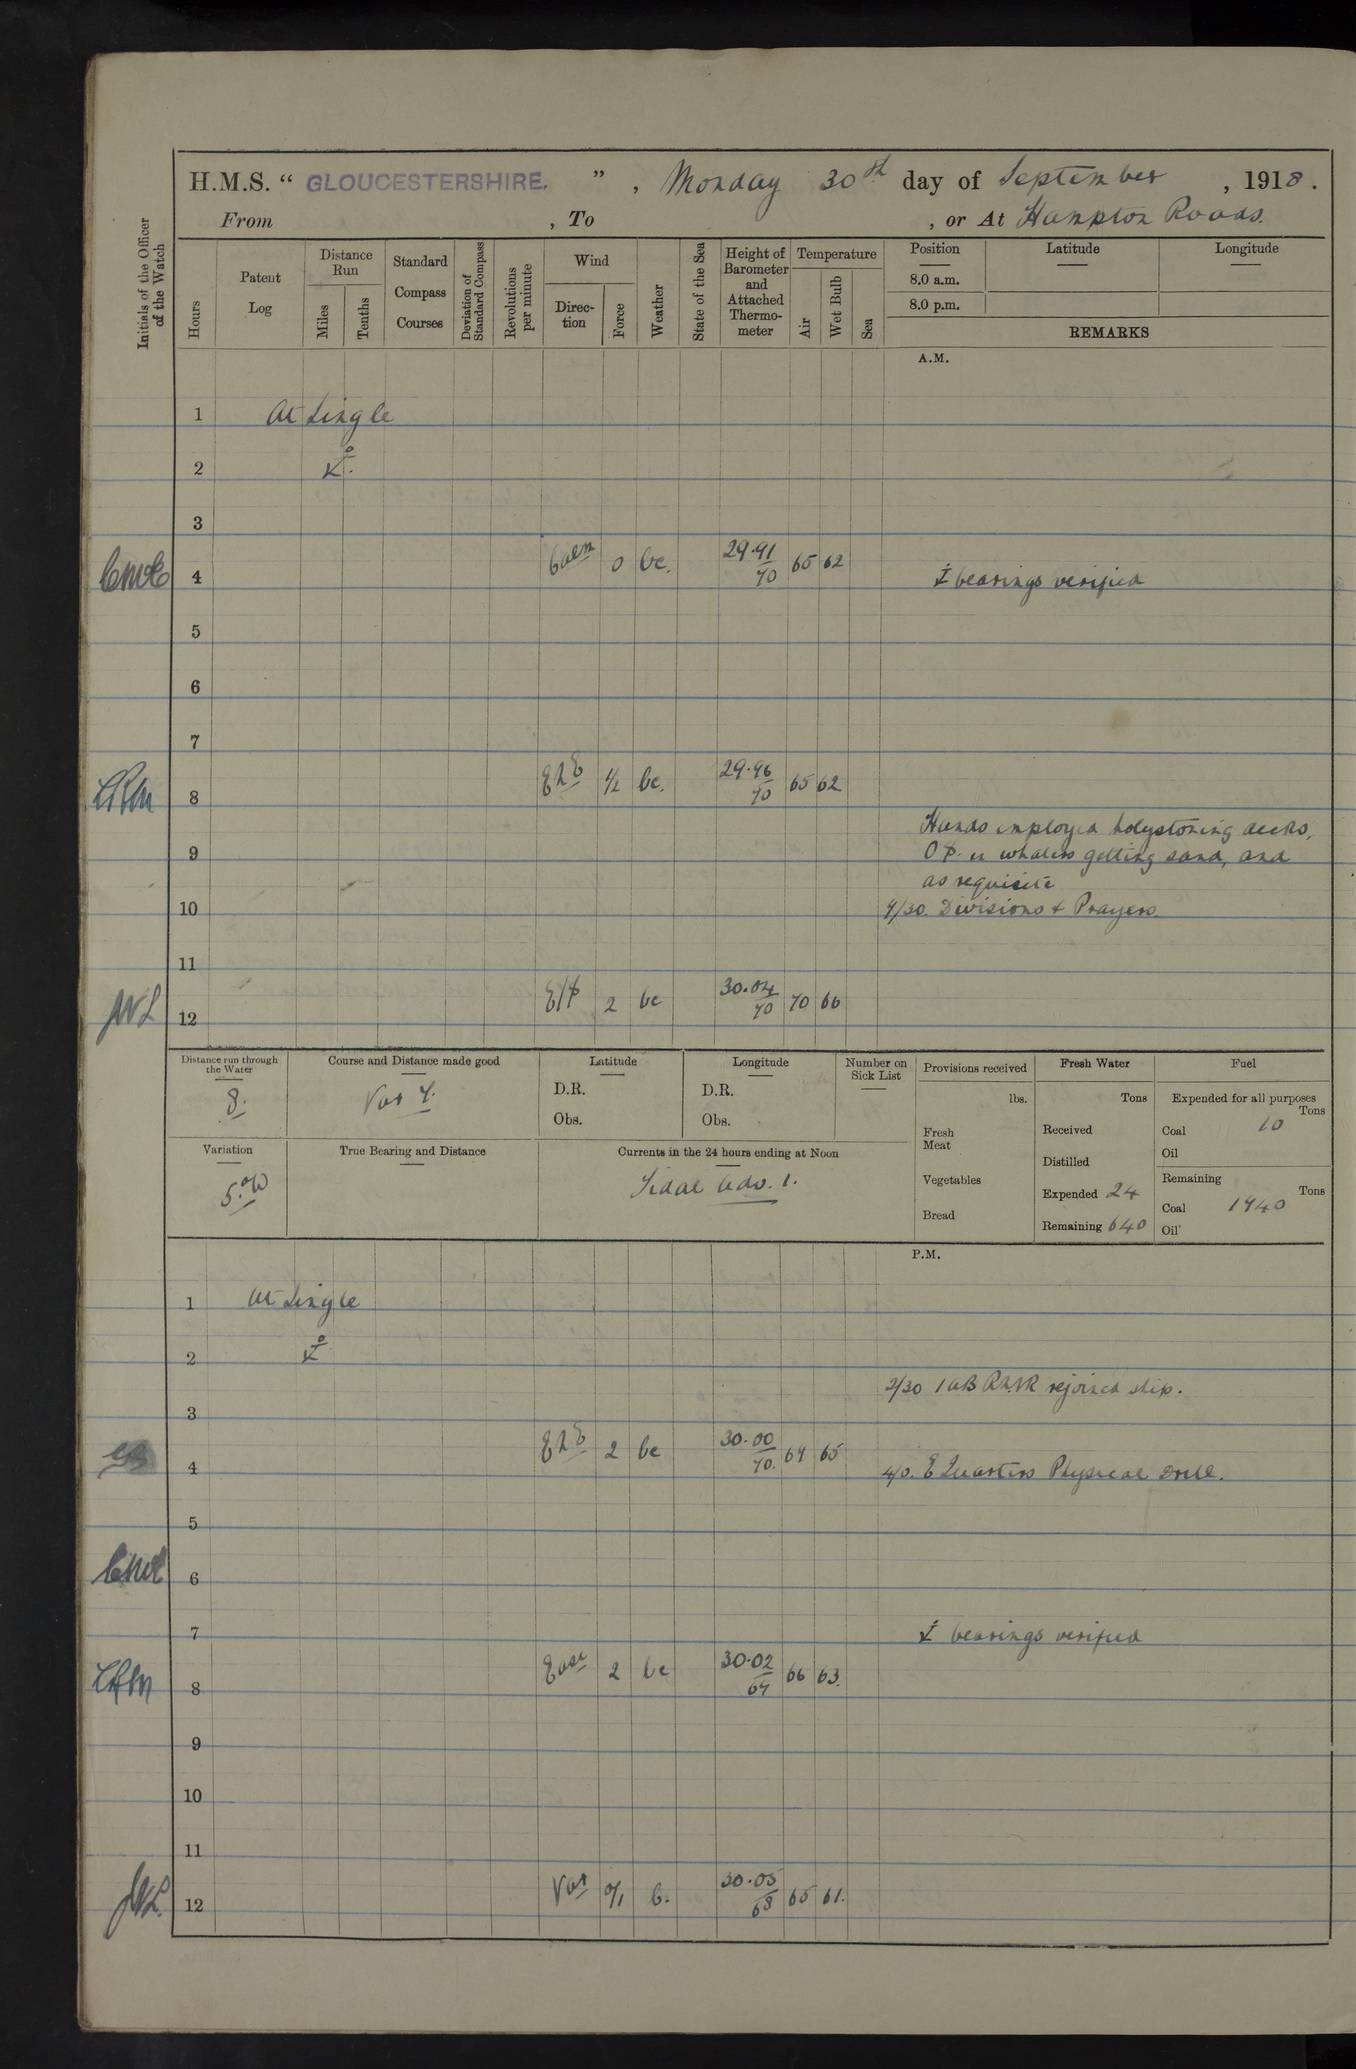 H.M.S. “ GLOUCESTERSHIRE. ” , Monday 30th day of September , 1918 .
From , To , or At Hampton Roads.
Initials of the Officer of the Watch
Hours
Patent Log
Distance Run
Miles
Tenths
Standard Compass Courses
Deviation of Standard Compass
Revolutions per minute
Wind
Direction
Force
Weather
State of the Sea
Height of Barometer and Attached Thermometer
Temperature
Air
Wet Bulb
Sea
Position Latitude Longitude
8.0 a.m.
8.0 p.m.
REMARKS
A.M.
1 At Single
2
3
4 Calm 0 bc. 29.91/70 65 62 bearings verified
5
6
7
8 EhE 1/2 bc. 29.96/70 65 62
Hands employed holystoning decks,
9 whalers getting sand, and
as requisite
10 9/30. Divisions & Prayers.
11
12 2 bc 30.04/70 70 66
Distance run through the Water
8.
Course and Distance made good
Var 4.
Latitude
D.R.
Obs.
Longitude
D.R.
Obs.
Number on Sick List
Provisions received
lbs.
Fresh Meat
Vegetables
Bread
Fresh Water
Tons
Received
Distilled
Expended 24
Remaining 640
Fuel
Expended for all purposes
Tons
Coal 10
Oil
Remaining
Tons
Coal 1940
Oil
Variation
5.°W
True Bearing and Distance
Currents in the 24 hours ending at Noon
Tidal Adv. 1.
P.M.
1 At Single
2
2/30 1 AB RNR rejoined ship.
3
4 EhE 2 bc 30.00/70. 69 65 4/0. E Quarters Physical Drill.
5
6
7 bearings verified
8 East 2 bc 30.02/69 66 63.
9
10
11
12 Var 0/1 b. 30.05/68 65 61.